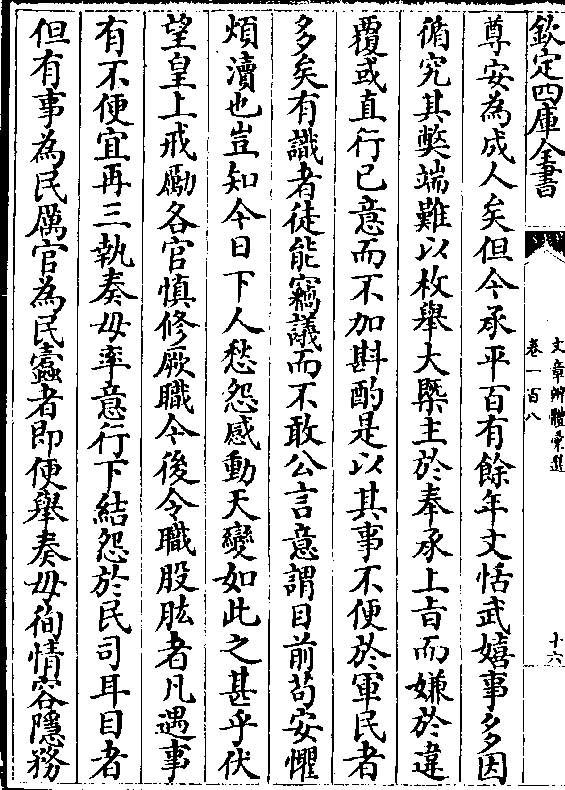 欽定四庫全書
文章辨體彙選
卷一百八
十六
尊安為成人矣但今承平百有餘年文恬武嬉事多因
循究其獘端難以枚舉大槩主於奉承上旨而嫌於違
覆或直行已意而不加斟酌是以其事不便於軍民者
多矣有識者徒能竊議而不敢公言意謂目前苟安懼
煩瀆也豈知今日下人愁怨感動天變如此之甚乎伏
望皇上戒勵各官慎修厥職今後令職股肱者凡遇事
有不便宜再三執奏毋率意行下結怨於民司耳目者
但有事為民厲官為民蠹者即便舉奏毋徇情容隱務